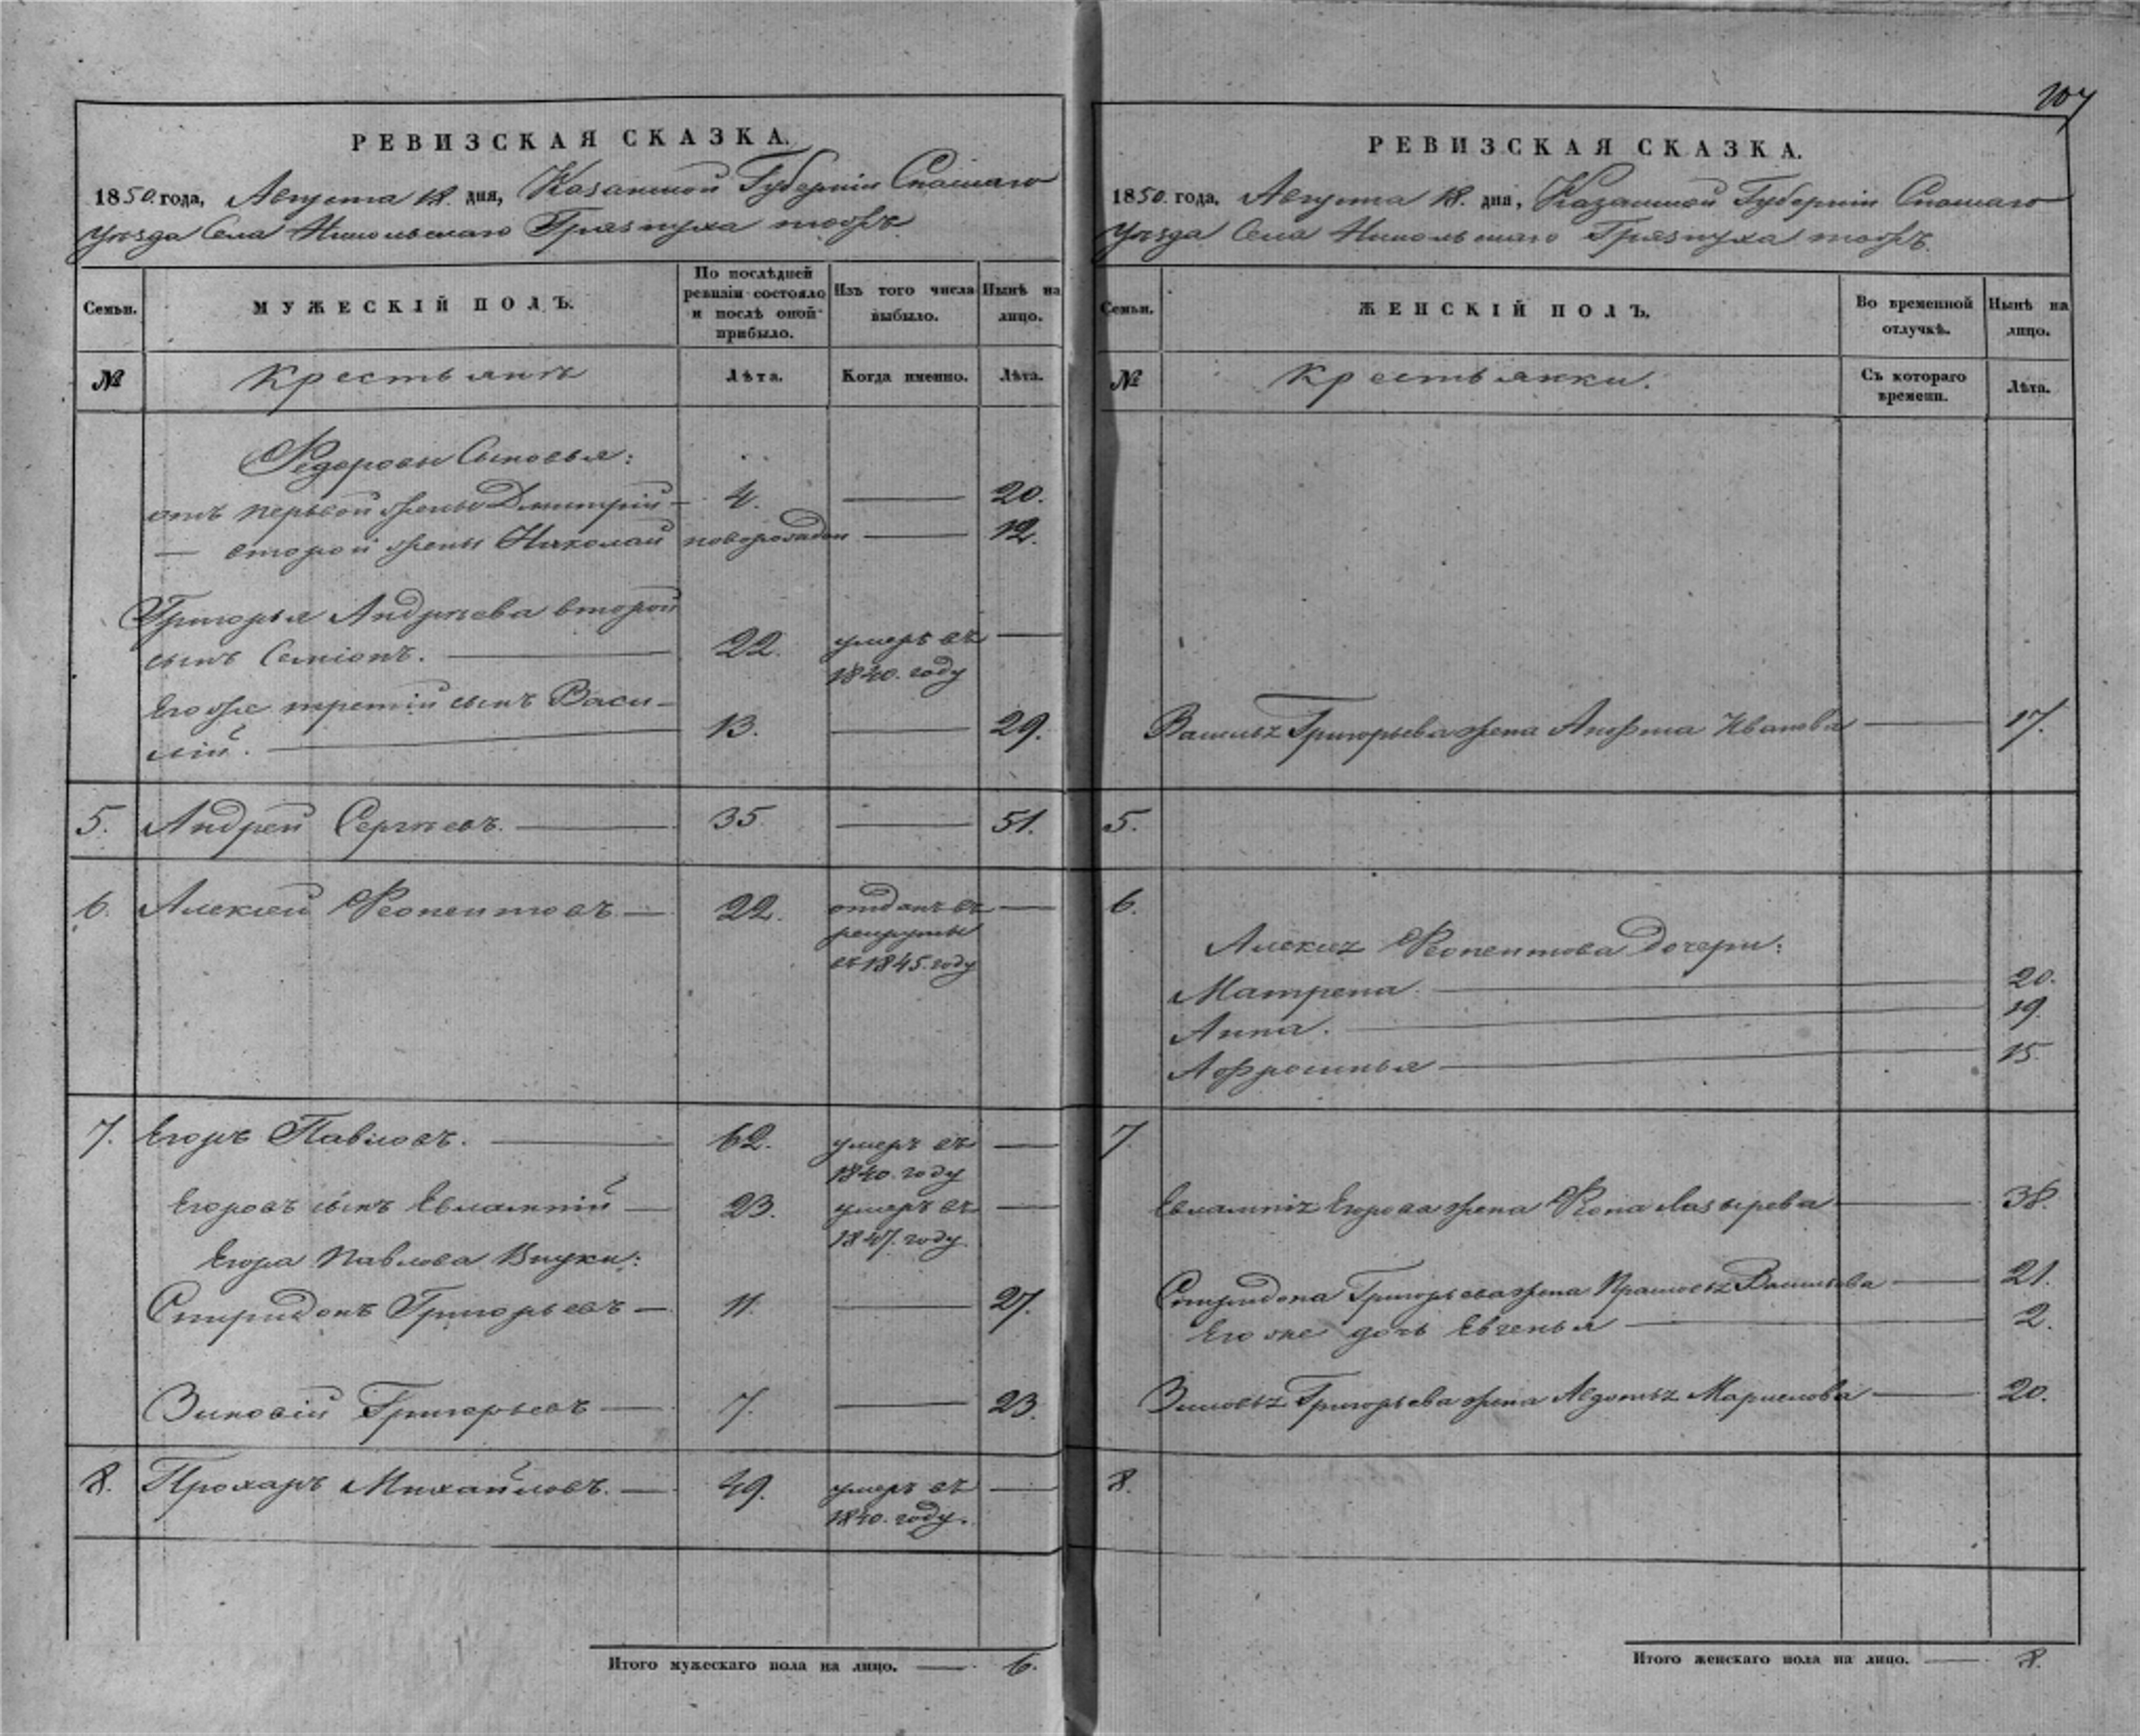 107
РЕВИЗСКАЯ СКАЗКА.
1850 года, Августа 18. дня, Казанской Губерніи Спаскаго
уѣзда Села Никольскаго Грязнуха тожъ
Семьи.
МУЖЕСКІЙ ПОЛЪ.
По послѣдней
ревизіи состояло
и послѣ оной
прибыло.
Изъ того числа
выбыло.
Нынѣ на
лицо.
№
Крестьянъ
Лѣта.
Когда именно.
Лѣта.
Ѳедоровы Сыновья:
отъ первой жены Дмитрій 4. 20.
— второй жены Николай новорожден 12.
Григорья Андрѣева второй
сынъ Семіонъ. 22. умеръ въ
1840. году
Егоже третій сынъ Васи-
лій. 13. 29.
5. Андрей Сергѣевъ. 35. 51.
6. Алексѣй Ѳеопентовъ 22. отданъ въ
рекруты
въ 1845. году
7. Егоръ Павловъ. 62. умеръ въ
1840. году
Егоровъ сынъ Евлампій 23. умеръ въ
1847. году.
Егора Павлова Внуки:
Спиридонъ Григорьевъ 11. 27.
Зиновій Григорьевъ 7. 23.
8. Прохаръ Михайловъ. 49. умеръ въ
1840. году.
Итого мужескаго пола на лицо. 6.
РЕВИЗСКАЯ СКАЗКА.
1850 года, Августа 18. дня, Казанской Губерніи Спаскаго
уѣзда Села Никольскаго Грязнуха тожъ.
Семьи.
ЖЕНСКІЙ ПОЛЪ.
Во временной
отлучкѣ.
Нынѣ на
лицо.
№
Крестьянки.
Съ котораго
времени.
Лѣта.
Григорьева жена Ивановa 17.
5.
6.
Ѳеопентова Дочери:
Матрена 20.
Анна. 19.
Афросинья 15.
7.
Егорова жена Лазырева 38.
Спиридона Григорьева жена Васильева 21.
Егоже дочь Евгенья 2.
Григорьева жена 20.
8.
Итого женскаго пола на лицо. 8.